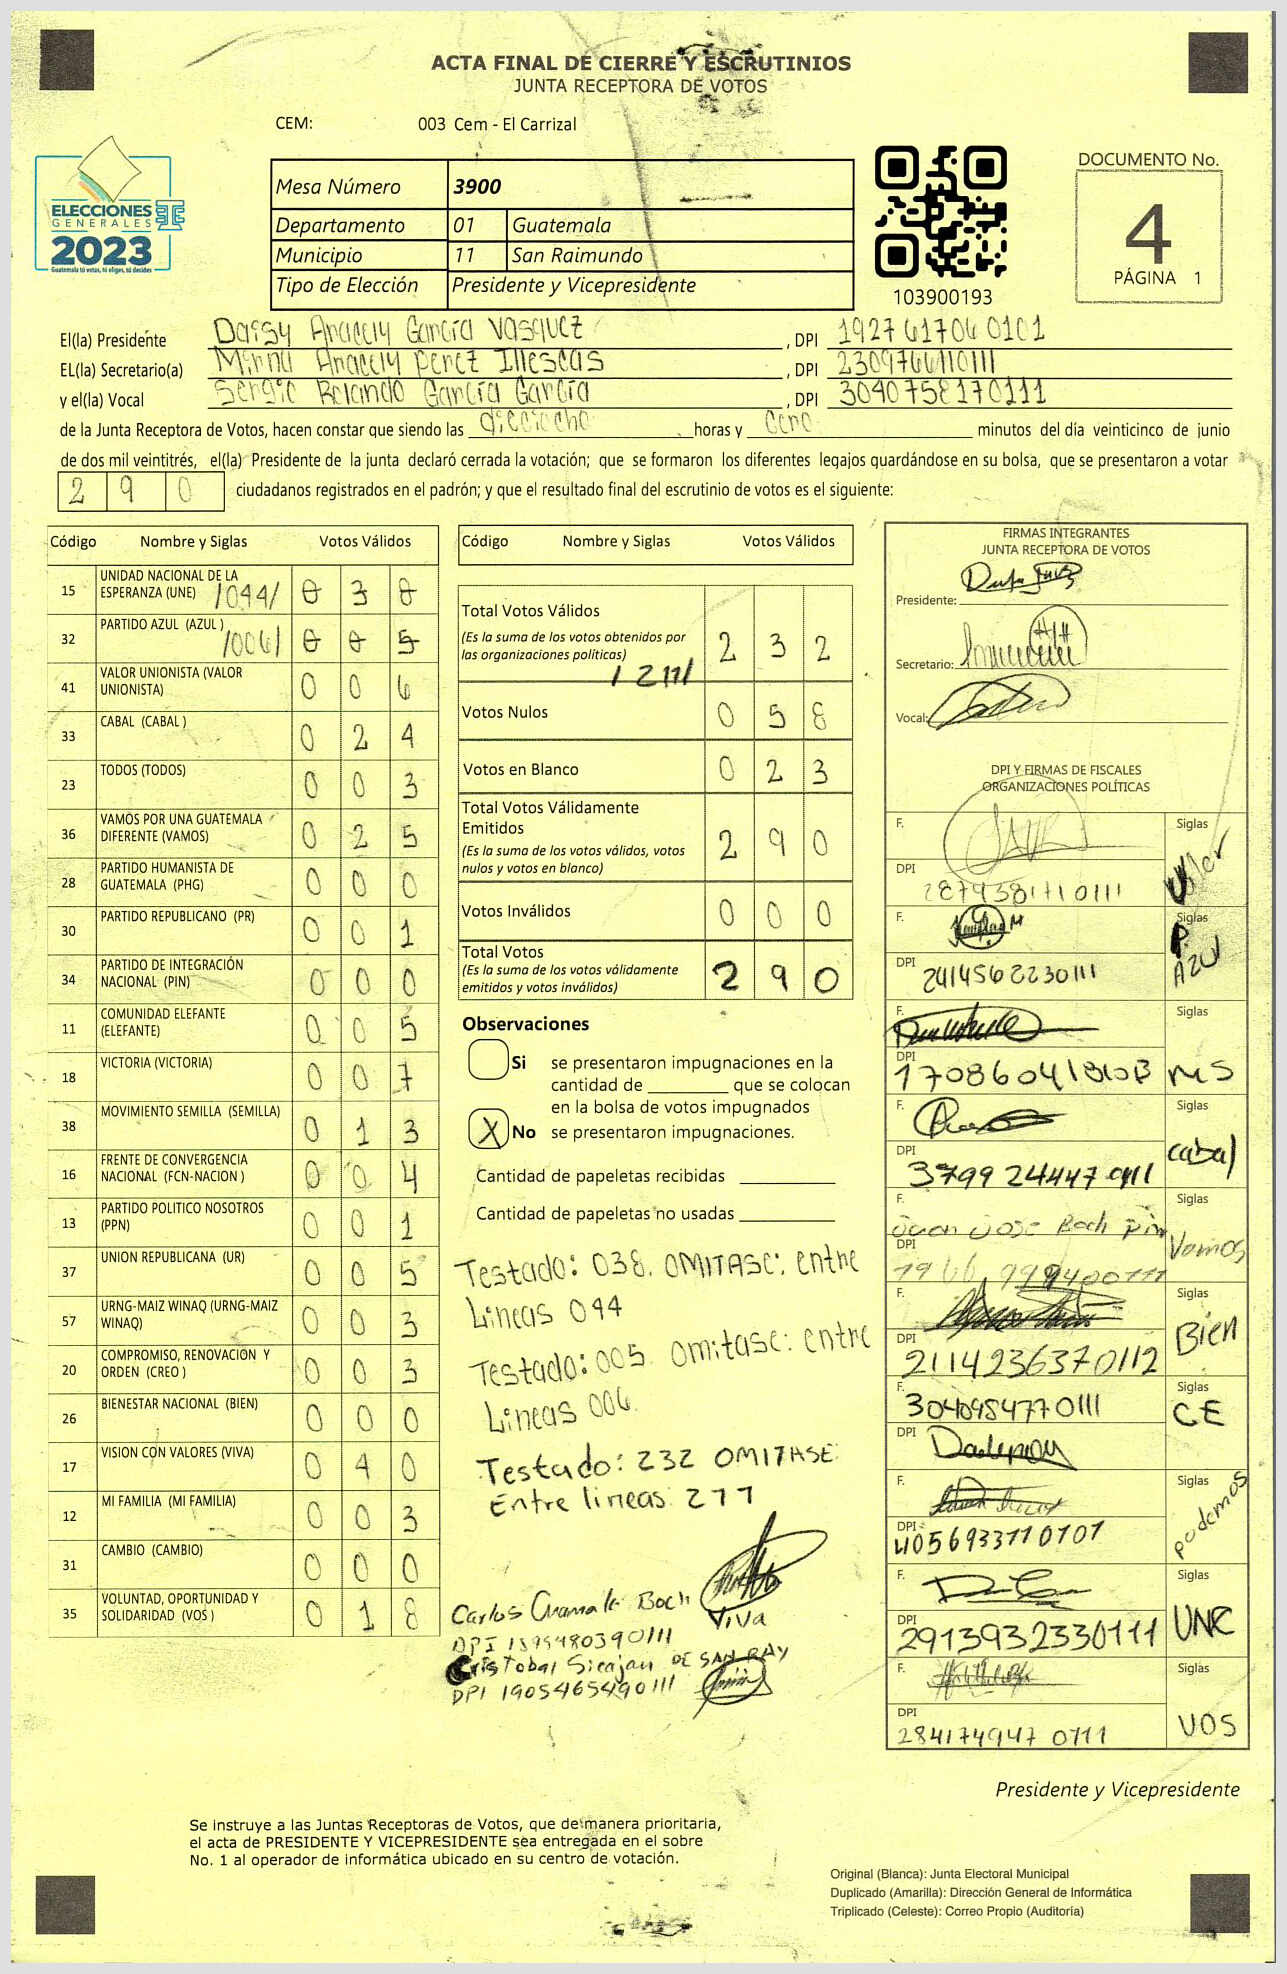 ACTA FINAL DE CIERRE Y ESCRUTINIOS
JUNTA RECEPTORA DE VOTOS
CEM: 003 Cem - El Carrizal
ELECCIONES
GENERALES
2023
Guatemala tú votas, tú eliges, tú decides
Mesa Número 3900
Departamento 01 Guatemala
Municipio 11 San Raimundo
Tipo de Elección Presidente y Vicepresidente
103900193
DOCUMENTO No.
4
PÁGINA 1
El(la) Presidente Daisy Aracely García Vasquez , DPI 1927617060101
EL(la) Secretario(a) Mirna Aracely Perez Illescas , DPI 2309766110111
y el(la) Vocal Sergio Rolando García García , DPI 3040758170111
de la Junta Receptora de Votos, hacen constar que siendo las dieciocho horas y cero minutos del día veinticinco de junio
de dos mil veintitrés, el(la) Presidente de la junta declaró cerrada la votación; que se formaron los diferentes legajos guardándose en su bolsa, que se presentaron a votar
2 9 0 ciudadanos registrados en el padrón; y que el resultado final del escrutinio de votos es el siguiente:
Código Nombre y Siglas Votos Válidos
15 UNIDAD NACIONAL DE LA ESPERANZA (UNE) /044/ 0 3 8
32 PARTIDO AZUL (AZUL ) /006/ 0 0 5
41 VALOR UNIONISTA (VALOR UNIONISTA) 0 0 6
33 CABAL (CABAL ) 0 2 4
23 TODOS (TODOS) 0 0 3
36 VAMOS POR UNA GUATEMALA DIFERENTE (VAMOS) 0 2 5
28 PARTIDO HUMANISTA DE GUATEMALA (PHG) 0 0 0
30 PARTIDO REPUBLICANO (PR) 0 0 1
34 PARTIDO DE INTEGRACIÓN NACIONAL (PIN) 0 0 0
11 COMUNIDAD ELEFANTE (ELEFANTE) 0 0 5
18 VICTORIA (VICTORIA) 0 0 7
38 MOVIMIENTO SEMILLA (SEMILLA) 0 1 3
16 FRENTE DE CONVERGENCIA NACIONAL (FCN-NACION ) 0 0 4
13 PARTIDO POLITICO NOSOTROS (PPN) 0 0 1
37 UNION REPUBLICANA (UR) 0 0 5
57 URNG-MAIZ WINAQ (URNG-MAIZ WINAQ) 0 0 3
20 COMPROMISO, RENOVACIÓN Y ORDEN (CREO ) 0 0 3
26 BIENESTAR NACIONAL (BIEN) 0 0 0
17 VISION CON VALORES (VIVA) 0 4 0
12 MI FAMILIA (MI FAMILIA) 0 0 3
31 CAMBIO (CAMBIO) 0 0 0
35 VOLUNTAD, OPORTUNIDAD Y SOLIDARIDAD (VOS ) 0 1 8
Código Nombre y Siglas Votos Válidos
Total Votos Válidos
(Es la suma de los votos obtenidos por
las organizaciones políticas) 2 3 2
Votos Nulos 0 5 8
Votos en Blanco 0 2 3
Total Votos Válidamente
Emitidos
(Es la suma de los votos válidos, votos
nulos y votos en blanco) 2 9 0
Votos Inválidos 0 0 0
Total Votos
(Es la suma de los votos válidamente
emitidos y votos inválidos) 2 9 0
Observaciones
Si se presentaron impugnaciones en la
cantidad de ________ que se colocan
en la bolsa de votos impugnados
X No se presentaron impugnaciones.
Cantidad de papeletas recibidas
Cantidad de papeletas no usadas
Testado: 038. OMITASE: entre
Lineas 044
Testado: 005. Omitase: entre
Lineas 006
Testado: 232 OMITASE
Entre lineas 211
Carlos Boch
VIVA
Cristobal Sicajan DE SAN RAY
DPI 1905465490111
FIRMAS INTEGRANTES
JUNTA RECEPTORA DE VOTOS
Presidente:
Secretario:
Vocal:
DPI Y FIRMAS DE FISCALES
ORGANIZACIONES POLÍTICAS
F. Siglas Valor
DPI 2879381710111
F. Siglas P. AZUL
DPI 2414562230111
F. Siglas MS
DPI
F. Siglas cabal
DPI 3799 24447 0111
F. Juan Jose Boch Siglas Vamos
DPI
F. Siglas Bien
DPI 2114236370112
F. 3040954770111 Siglas CE
DPI
F. Siglas podemos
DPI 4056933710101
F. Siglas UNE
DPI 2913932330111
F. Siglas VOS
DPI 284174947 0111
Presidente y Vicepresidente
Se instruye a las Juntas Receptoras de Votos, que de manera prioritaria,
el acta de PRESIDENTE Y VICEPRESIDENTE sea entregada en el sobre
No. 1 al operador de informática ubicado en su centro de votación.
Original (Blanca): Junta Electoral Municipal
Duplicado (Amarilla): Dirección General de Informática
Triplicado (Celeste): Correo Propio (Auditoría)